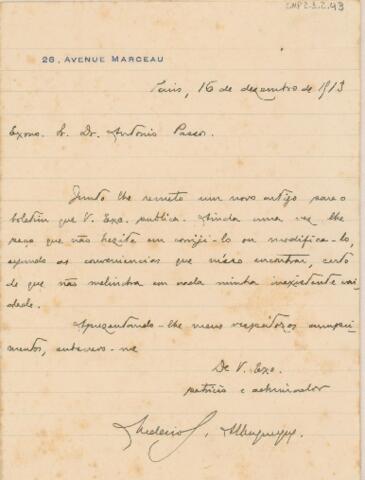 26, AVENUE MARCEAU
Paris, 16 de dezembro de 1913
Exmo. Sr. Dr. Antonio Passos.
Junto lhe remeto um novo artigo para o
boletim que V. Exa. publica. Ainda uma vez lhe
peço que não hezite em corriji-lo ou modifica-lo,
segundo as conveniencias que nisso encontrar, certo
de que não melindra em nada minha inexistente vai-
dade.
Aprezentando-lhe meus respeitozos cumpri-
mentos, subscrevo-me
De V. Exa.
patricio e admirador
Albuquerque.